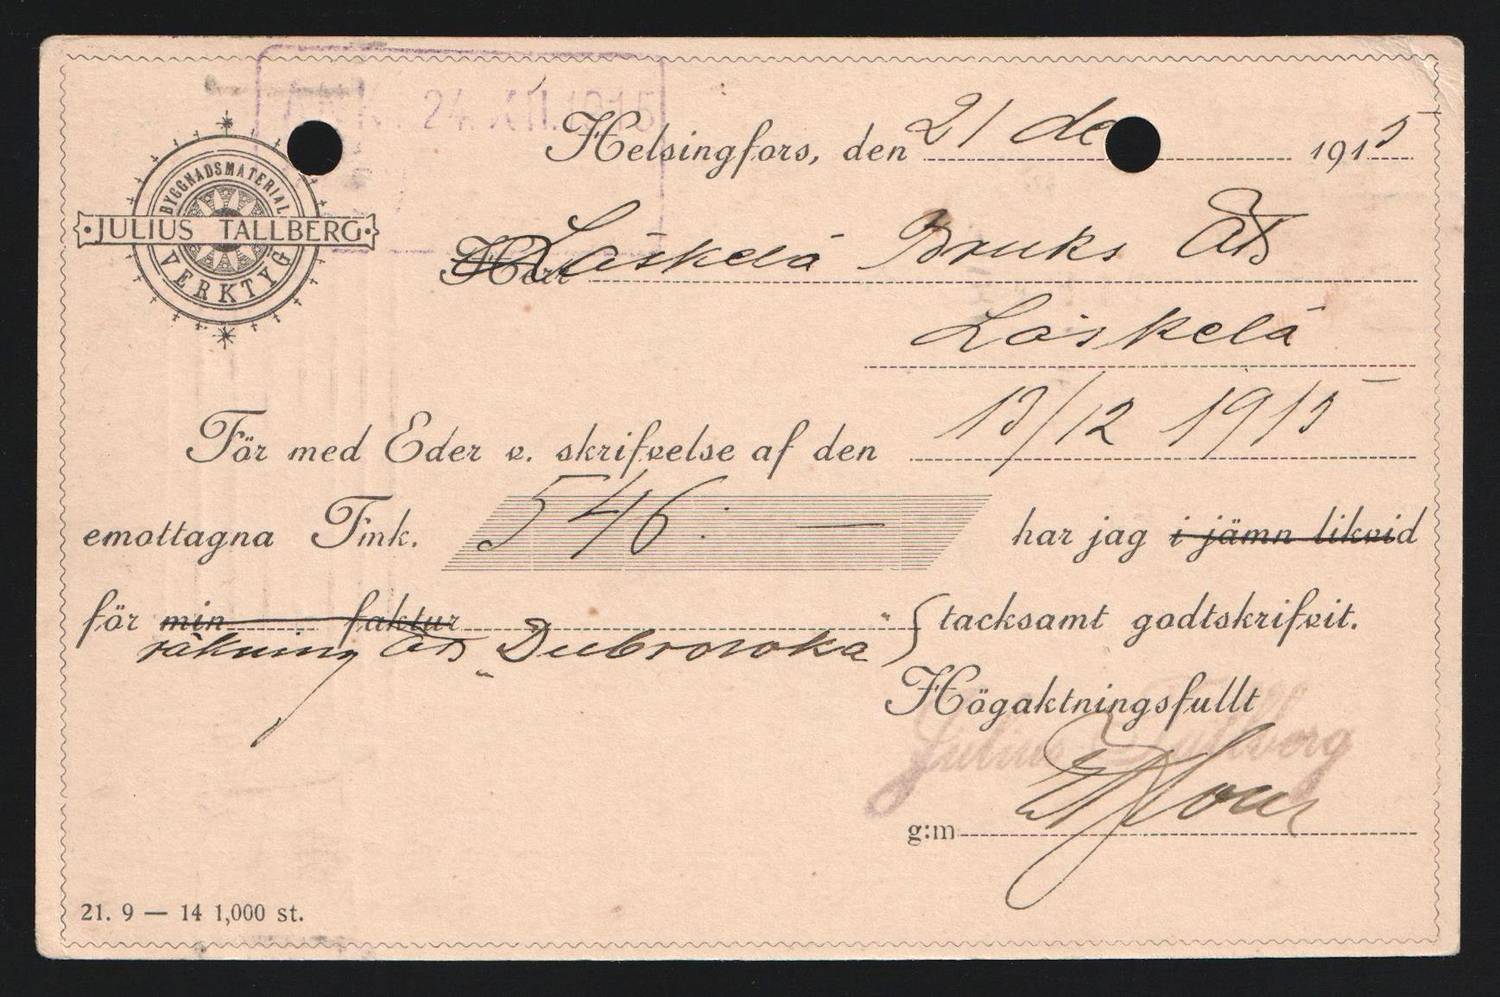 ANK. 24. XII. 1915
BYGGNADSMATERIAL
JULIUS TALLBERG
VERKTYG
Helsingfors, den 21 de 1915
Herr Läskelä Bruks AB
Läskelä
För med Eder v. skrifvelse af den 13/12 1915
emottagna Fmk. 546: — har jag i jämn likvid
för min faktur tacksamt godtskrifvit.
räkning AB "Dubrovoka"
Högaktningsfullt
Julius Tallberg
g:m
21. 9 — 14 1,000 st.